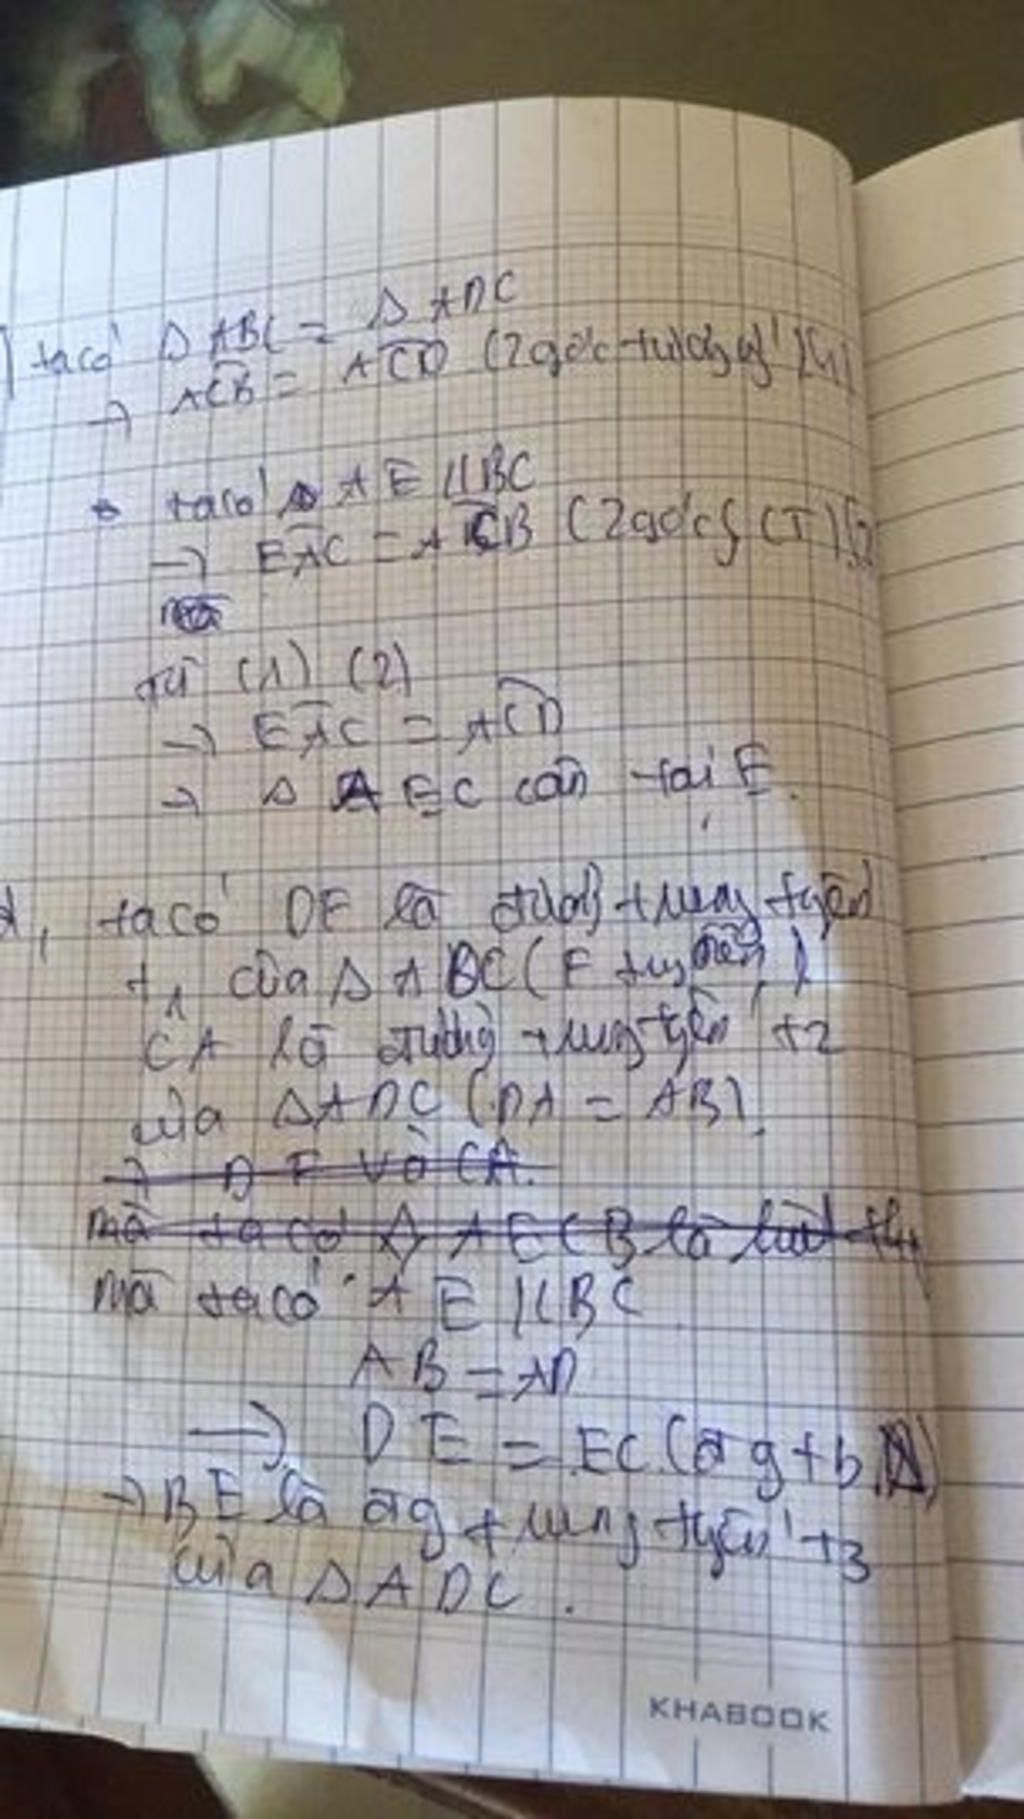 ) ta có Δ ABC = Δ ADC
→ ACB = ACD (2 góc tương ứ') (1)
ta có AE // BC
→ EAC = ACB (2 góc SLT) (2
từ (1) (2)
→ EAC = ACD
→ Δ AEC cân tại E.
d, ta có DF là đường trung tuyến
t1 của Δ ABC (F
CA là đường trung tuyến t2
của Δ ADC (DA = AB)
→ D F và CA.
mà ta có Δ AECB là
mà ta có AE // BC
AB = AD
→ DE = EC (đg tb Δ)
→ BE là đg trung tuyến t3
của Δ ADC.
KHABOOK